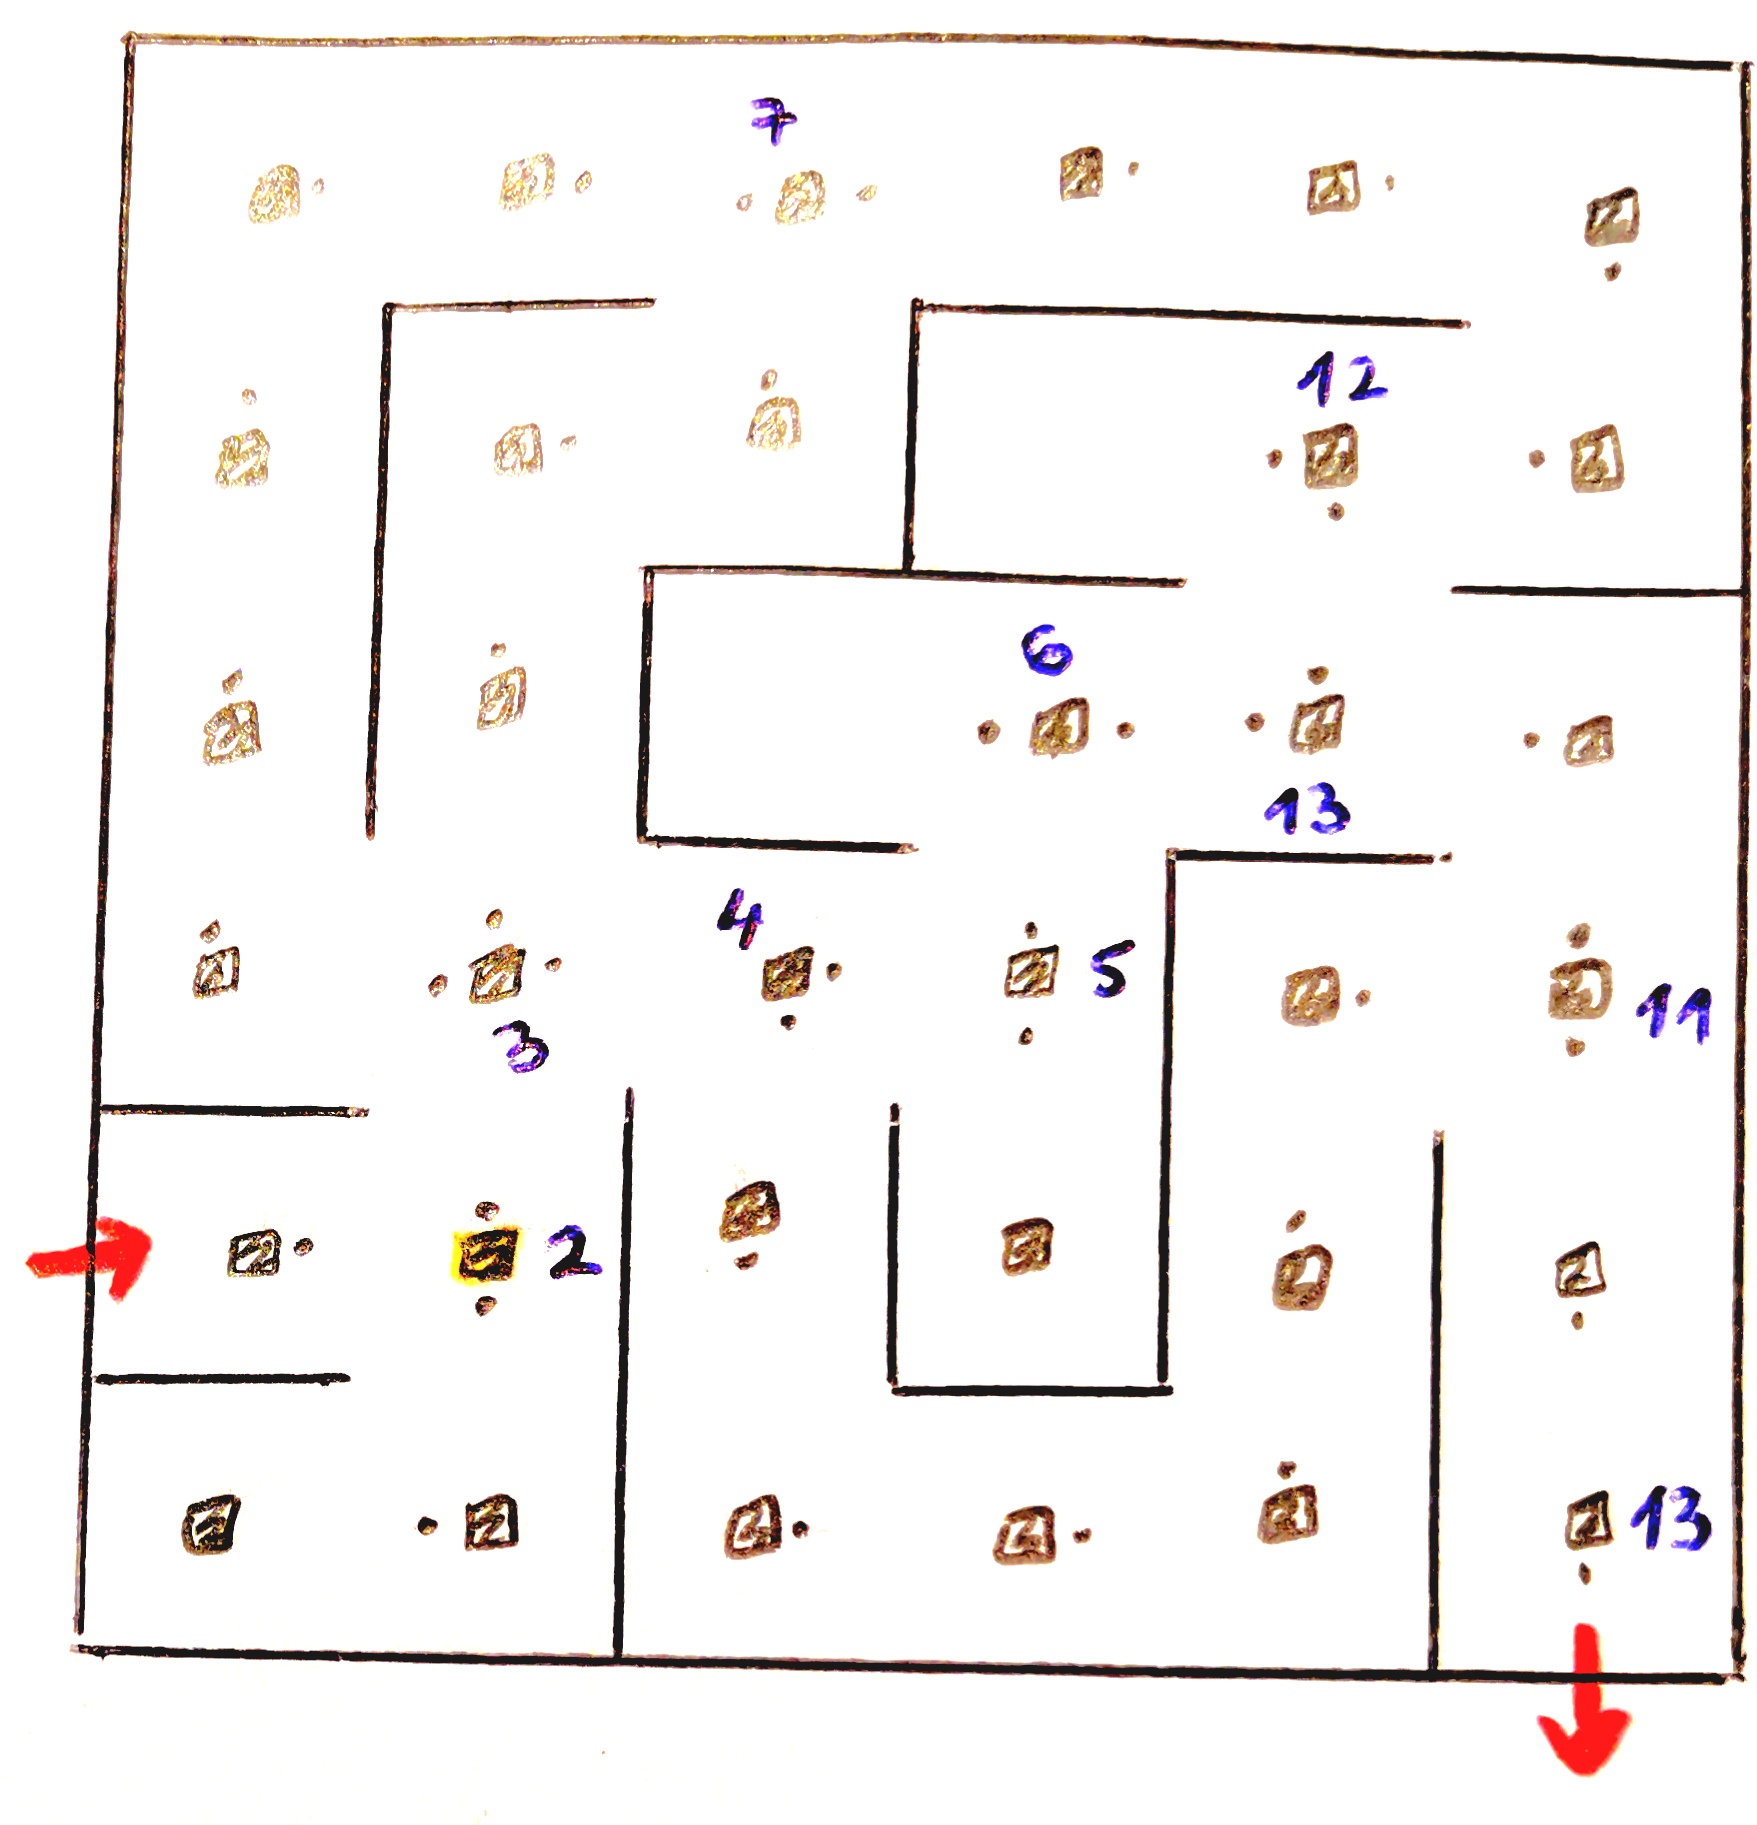 7
12
6
13
4
5
11
3
2
13